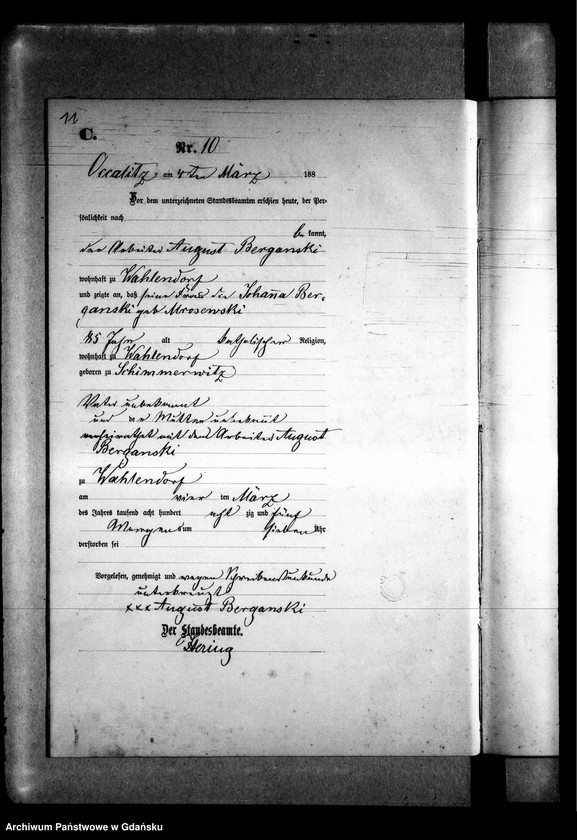 11
C.
Nr. 10
Occalitz am 4ten März 188
Vor dem unterzeichneten Standesbeamten erschien heute, der Per-
sönlichkeit nach
be kannt,
der Arbeiter August Berganski
wohnhaft zu Wahlendorf
und zeigte an, daß seine Frau die Johanna Ber-
ganski geb Mrosewski
Jahr alt katholischer Religion,
wohnhaft zu Wahlendorf
geboren zu Schimmerwitz
Vater unbekannt
und die Mutter unbekannt
verheirathet mit dem Arbeiter August
Berganski
zu Wahlendorf
am vier ten März
des Jahres tausend acht hundert acht zig und fünf
Morgens um sieben Uhr
verstorben sei
Vorgelesen, genehmigt und wegen Schreibensunkunde
unterkreuzt
xxx August Berganski
Der Standesbeamte.
Hering
Archiwum Państwowe w Gdańsku